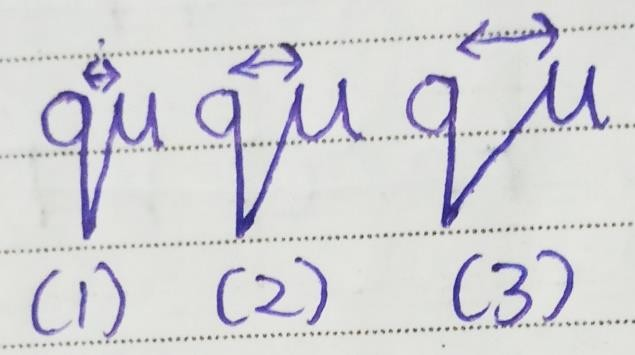 qu qu qu
(1) (2) (3)